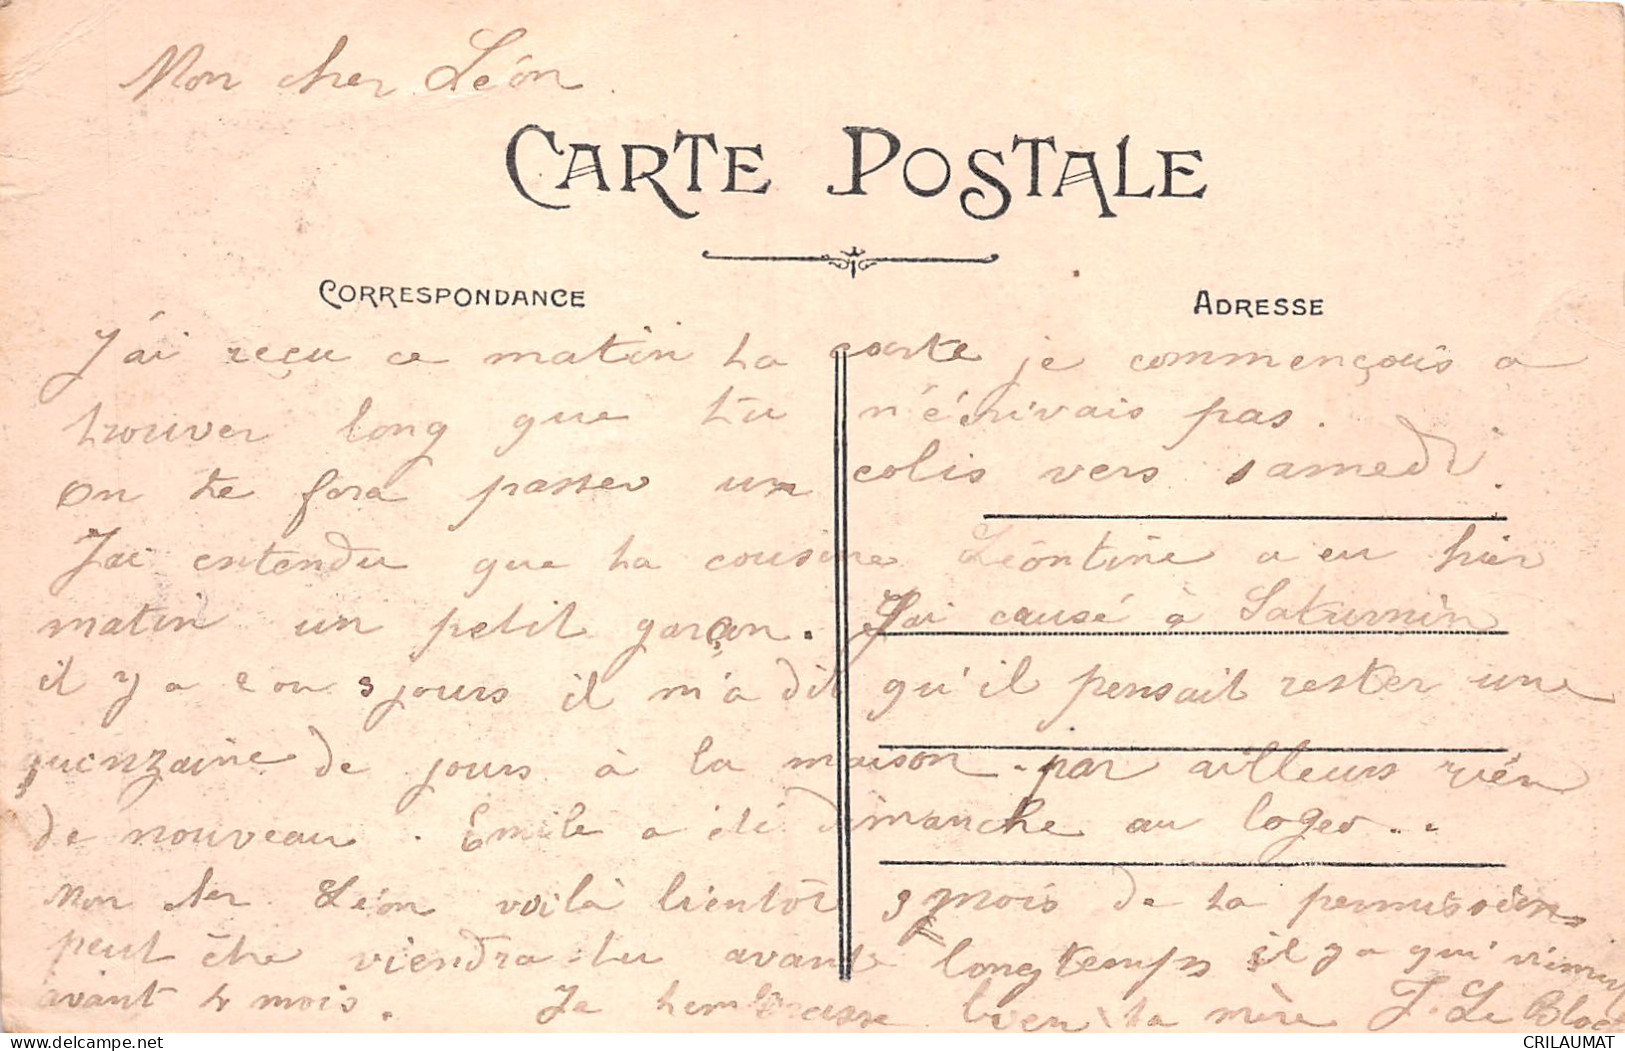 Mon cher Léon
CARTE POSTALE
CORRESPONDANCE
ADRESSE
J'ai reçu ce matin ta carte je commençais a
trouver long que tu n'écrivais pas.
on te fera passer un colis vers samedi.
J'ai entendu que ta cousine Léontine a eu hier
matin un petit garçon. J'ai causé à Saturnin
il y a 2 ou 3 jours il m'a dit qu'il pensait rester une
quinzaine de jours à la maison. par ailleurs rien
de nouveau. Emile a été dimanche au loger..
Mon cher Léon voilà bientôt 3 mois de ta permission
peut être viendra tu avant longtemps il y a qui
avant 4 mois. Je t'embrasse bien ta mère J. Le Bloc
CRILAUMAT